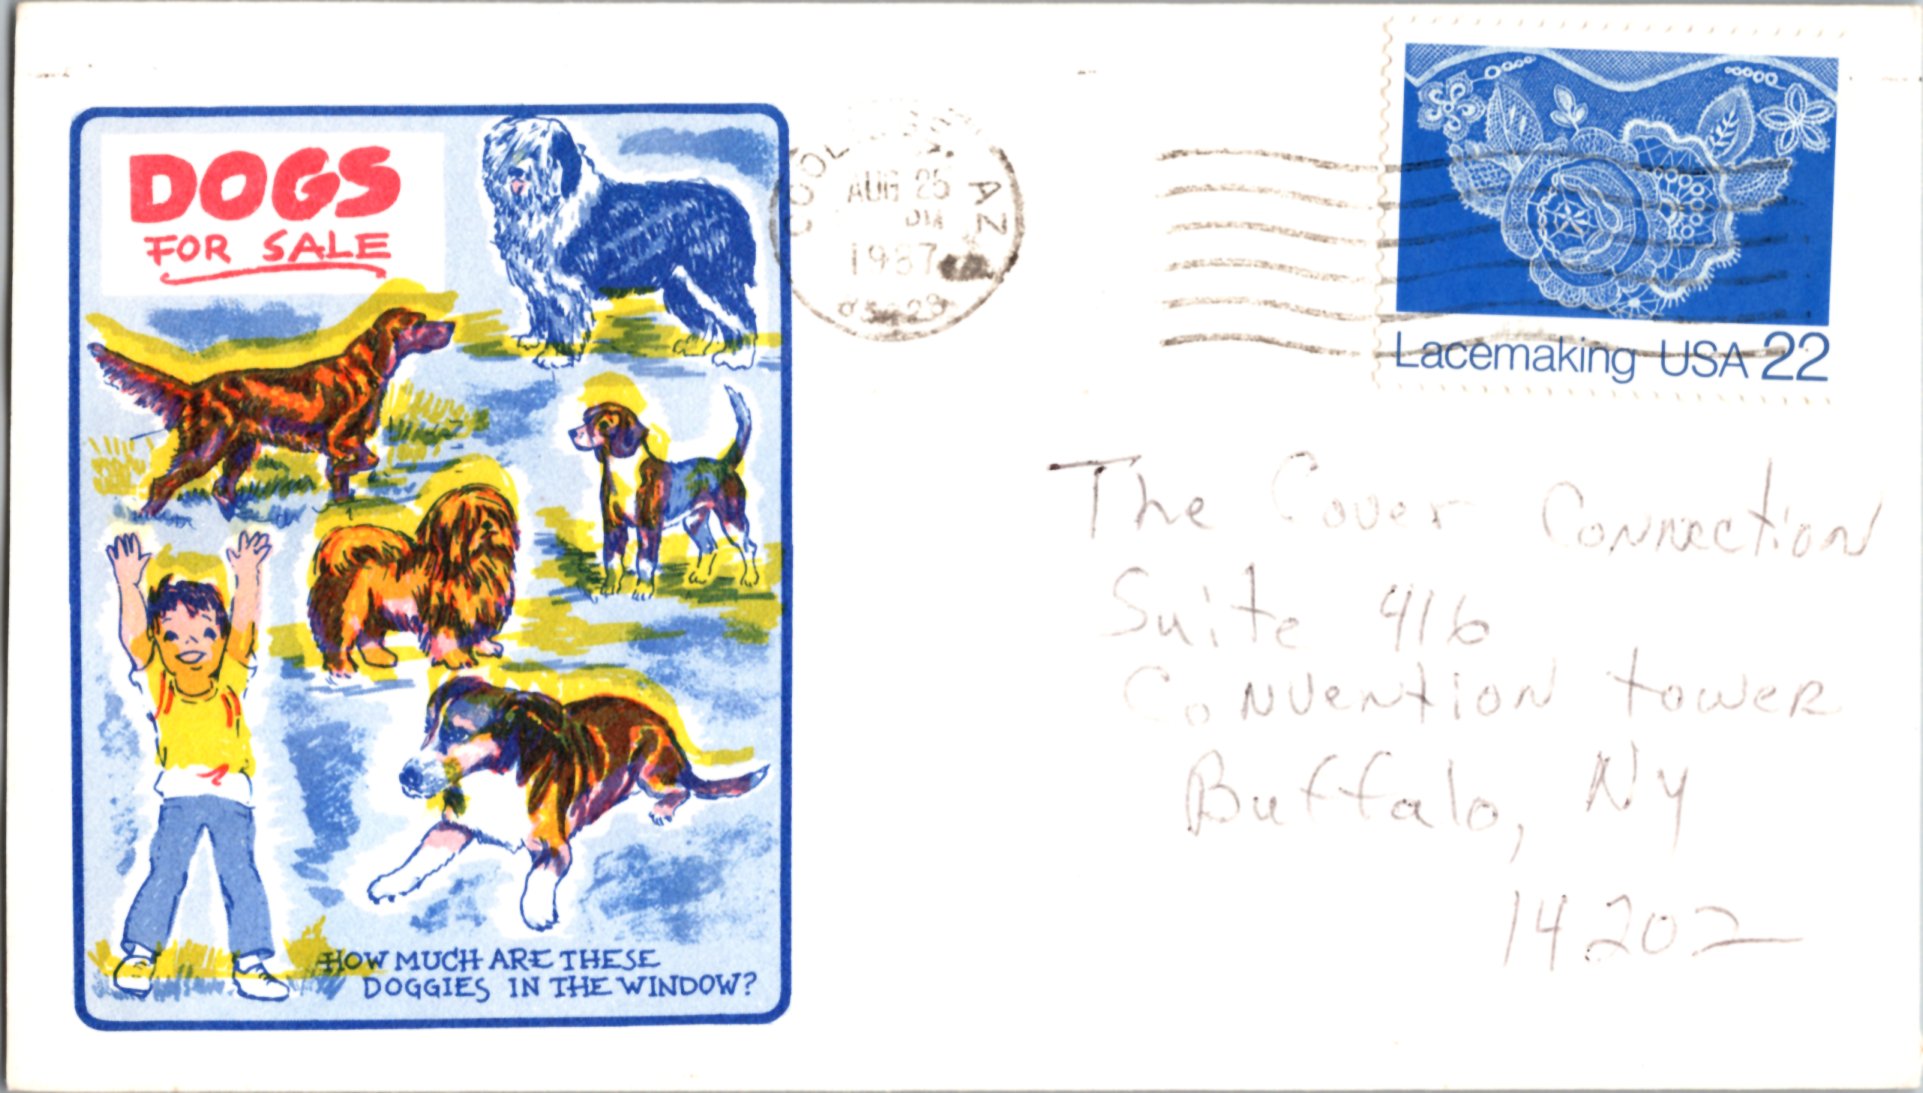 DOGS
FOR SALE
HOW MUCH ARE THESE
DOGGIES IN THE WINDOW?
AZ
AUG 25
PM
1987
Lacemaking USA 22
The Cover Connection
Suite 416
Convention tower
Buffalo, Ny
14202